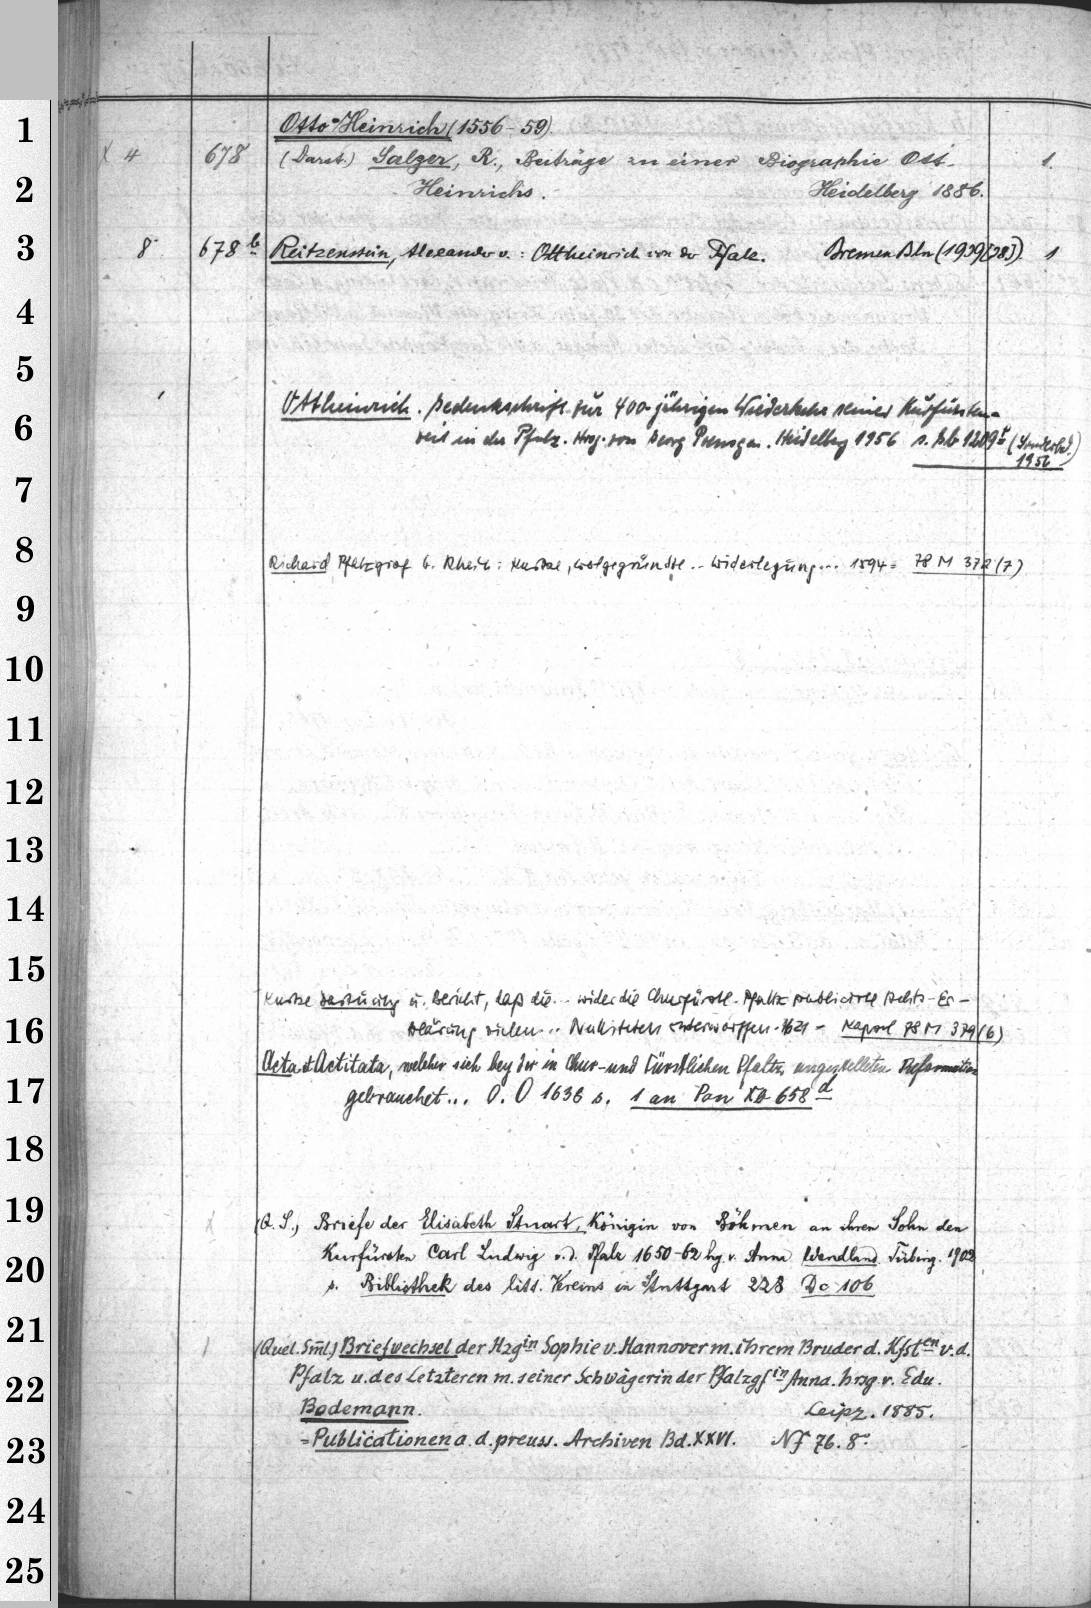 1
Otto-Heinrich (1556-59).
X 4 678 (Darst.) Salzer, R., Beiträge zu einer Biographie Ott- 1.
2
Heinrichs. Heidelberg 1886.
3
8° 678 b Reitzenstein, Alexander v.: Ottheinrich von der Pfalz. Bremen Bln (1939[38]). 1
4
5
Ottheinrich. Gedenkschrift zur 400-jährigen Wiederkehr seiner Kurfürsten-
6
zeit in der Pfalz. Hrsg. von Georg Poensgen. Heidelberg 1956 s. 1209 (Sonderbd. 1956)
7
8
Richard Pfalzgraf b. Rhein: Kurtze, wolgegründte .. Widerlegung ... 1594 = 78 M 372 (7)
9
10
11
12
13
14
15
Kurtze u. Bericht, daß die .. wider die Churfürstl. Pfaltz publicirte Achts-Er-
16
klärung vielen .. Nulliteten underworffen. 1621 - Kapsel 78 M 379 (6)
Acta et Actitata, welcher sich bey der in Chur- und Fürstlichen Pfaltz, angestelleten Reformation
17
gebrauchet... O. O 1636 s. 1 an Pon 658 d
18
19
(Q. S.) Briefe der Elisabeth Stuart, Königin von Böhmen an ihren Sohn den
20
Kurfürsten Carl Ludwig v. d. Pfalz 1650-62 hg. v. Anna Wendland. Tübing. 1902
s. Bibliothek des litt. Vereins in Stuttgart 228 Dc 106
21
(Quel. Sml.) Briefwechsel der Hzgin Sophie v. Hannover m. ihrem Bruder d. Kfsten v. d.
22
Pfalz u. des Letzteren m. seiner Schwägerin der Pfalzgfin Anna. hrzg. v. Edu.
Bodemann. Leipz. 1885.
23
= Publicationen a. d. preuss. Archiven Bd. XXVI. NF 76. 8°
24
25